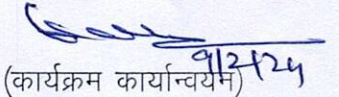 9/2/24
(कार्यक्रम कार्यान्वयन)